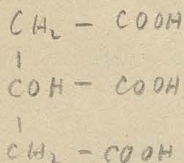 CH₂ - COOH
|
COH - COOH
|
CH₂ - COOH